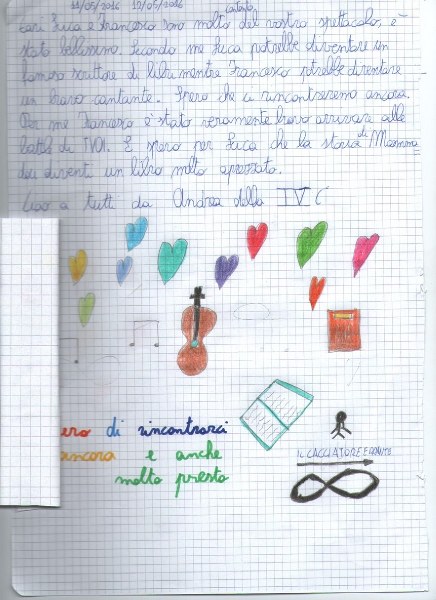 11/05/2016 12/05/2016
cari Luca e Francesco sono molto del vostro spettacolo, è
stato bellissimo. Secondo me Luca potrebbe diventare un
famoso scrittore di libri mentre Francesco potrebbe diventare
un bravo cantante. Spero che ci rincontreremo ancora.
Per me Francesco è stato veramente bravo arrivare alle
di TVOI. E spero per Luca che la storia di Mamma
diventi un libro molto apprezzato.
Ciao a tutti da Andrea della IV C
ero di rincontrarci
ancora e anche
molto presto
IL CACCIATORE ERRANTE